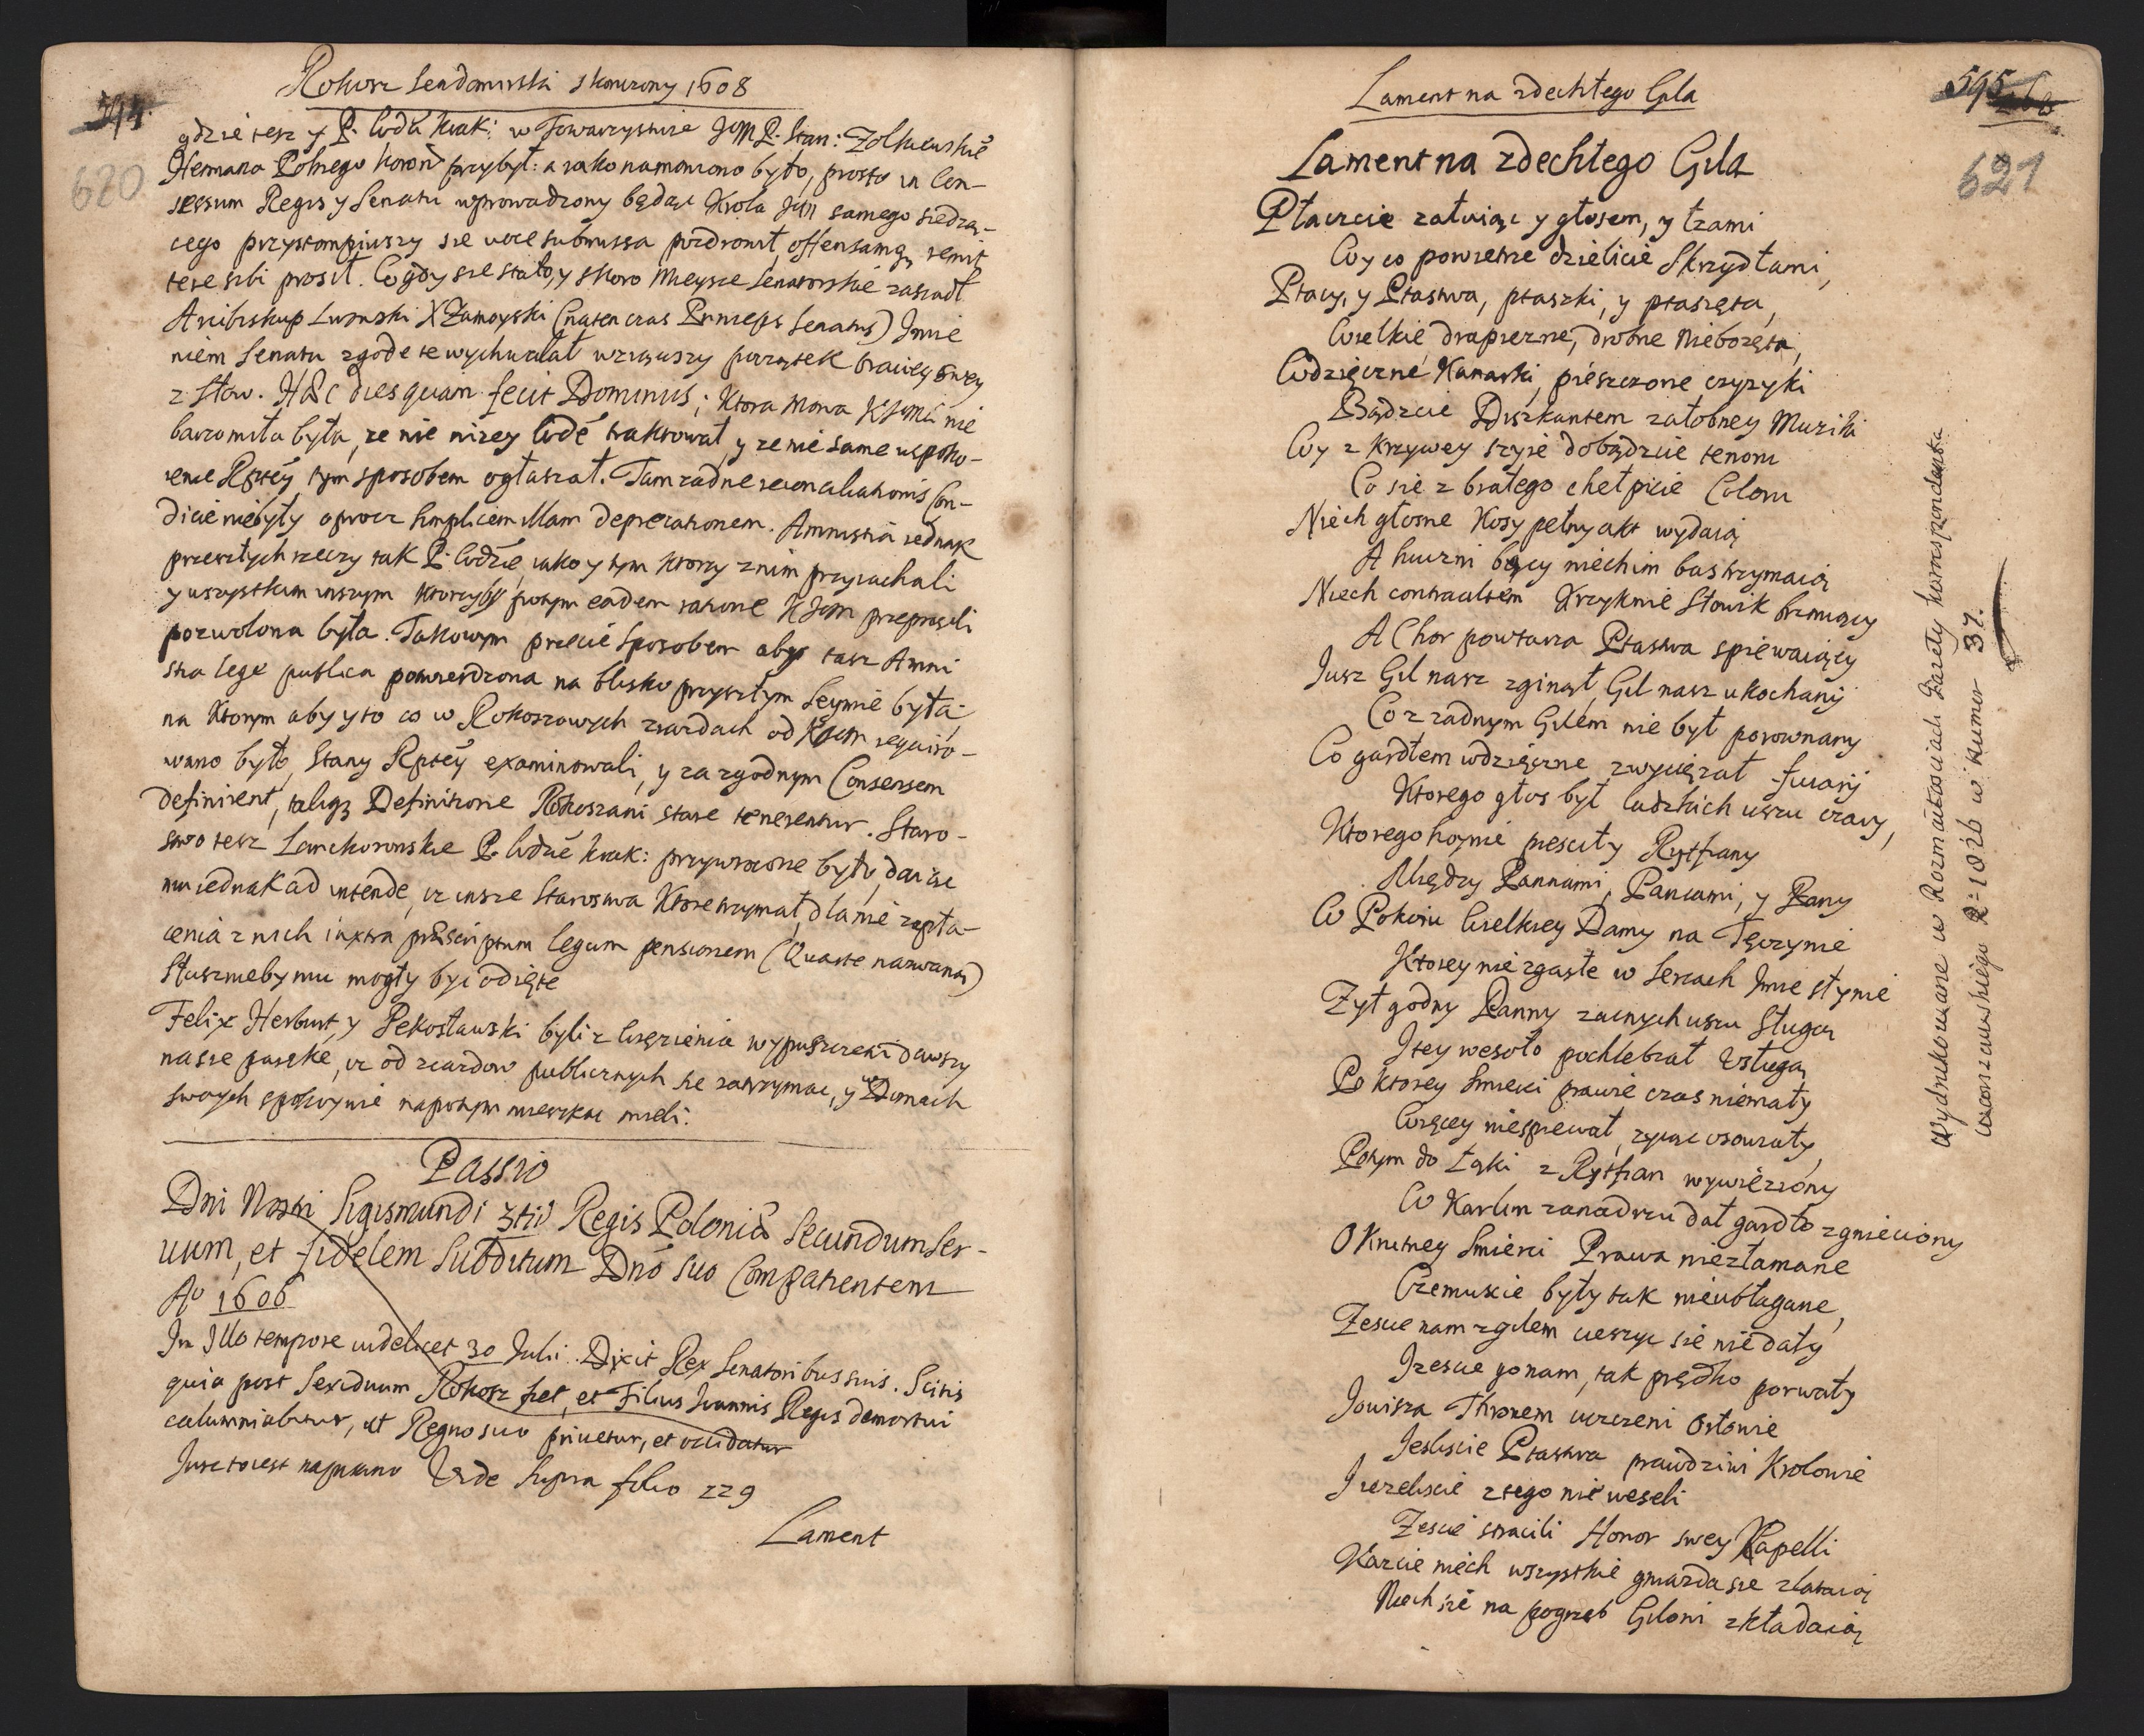 Rokosz Sendomirski skonczony 1608
594.
620
gdzie tesz y P. Woda Krak: w Towarzystwie JeM P. Stan: Zolkiewskie
Hetmana Polnego Koron przybył: a iako namoniono było, prosto in Con-
sessum Regis y Senatu wprowadzony będąc Krola Jm samego siedzą-
cego przystompiwszy sie voce submissa pozdrowił, offensamq remit
tere sibi prosił. Co gdy sie stało, y skoro Mieysce Senatorskie zasiadł
Arcibiskup Lwowski X Zamoyski (na ten czas Princeps Senatus) Jmie
niem Senatu zgode te wychwalał wziąwszy początek oraciey swey
z Słow. Hæc dies quam fecit Dominus; Ktora Mowa KJeMci nie
barzo miła była, ze nie nizey Wodę traktował, y ze nie same uspoko-
ienie Rptey tym sposobem ogłaszał. Tam zadne reconciliationis Con-
dicie niebyły oprocz simplicem illam deprecationem. Amnistia iednak
przeszłych rzeczy tak P. Wodzie, iako y tym ktorzy z nim przyiachali
y wszystkim inszym Ktorzyby potym eadem ratione KJem przeprosili
pozwolona była. Takowym przecie sposobem aby tasz Amni
stia lege publica potwierdzona na blisko przyszłym Seymie była;
na Ktorym aby y to co w Rokoszowych ziazdach od KJem requiro-
wano było, Stany Rptey examinowali, y za zgodnym Consensem
definirent, taliq Definitione Rokoszani stare tenerentur. Staro-
stwo tesz Lanckoronskie P. Wodzie Krak: przywrocone było, daiąc
mu iednak ad intende, iz insze Starostwa Ktore trzymał, dla nie zapła-
cenia z nich iuxta præscriptum legum pensionem (Quarte nazwana)
Słusznieby mu mogły byc odięte
Felix Herburt, y Pekosławski byli z Więzienia wypuszczeni dawszy
na sie paręke, iz od ziazdow publicznych sie zatrzymac, y w Domach
swoych spokoynie napotym mieszkac mieli.
Passio
Dni Nostri Sigismundi 3tii Regis Poloniæ Secundum Ser-
uum, et fidelem Subditum Dno suo Compatientem
Ao 1606
In Illo tempore videlicet 30 Julii. Dixit Rex Senatoribus suis. Scitis
quia post Sexiduum Rokosz fiet, et Filius Joannis Regis demortui
calumniabitur, ut Regno suo priuetur, et occidatur
Jusz to iest napisano Vide supra folio 229
Lament
Lament na zdechłego Gila
595
621
Lament na zdechłego Gila
Płaczcie załuiąc y głosem, y łzami
Wy co powietrze dzielicie Skrzydłami,
Ptacy, y Ptastwa, ptaszki, y ptaszęta,
Wielkie, drapiezne, drobne Niebozęta,
Wdzięczne Kanarki, pieszczone czyzyki
Bądzcie Diszkantem załobney Muziki
Wy z krzywey szyie dobądzcie tenoru
Co sie z białego chełpicie Coloru
Niech głosne Kosy pełny akt wydaią
A huczni bący niech im bas trzymaią
Niech contraaltem Krzyknie Słowik brzmiący
A Chor powtarza Ptastwa spiewaiący
Jusz Gil nasz zginął, Gil nasz ukochany
Co z zadnym Gilem nie był porownany
Co gardłem wdzięczne zwycięzał fuiary
Ktorego głos był ludzkich uszu czary,
Ktorego hoynie piescieły Rytfiany
Między Pannami, Paniami, y Pany
W Pokoiu Wielkiey Damy na Tęczynie
Ktorey nie zgasłe w Sercach Jmie słynie
Zył godny Panny zacnych uszu Sługa
I tey wesoło pochlebiał Usługa
Po ktorey Smierci prawie czas niemały
Więcey niespiewał, zyiąc osowiały
Potym do Łąki z Rytfian wywieziony
W Karlim zanadrzu dał gardło zgnieciony
O Krutney Smierci Prawa niezłamane
Czemuscie były tak nieubłagane,
Zescie nam z gilem cieszyc sie nie dały
I zescie go nam, tak prędko porwały
Jowisza Thronem uczczeni Orłowie
Jesliscie Ptastwa prawdziwi Krolowie
I iezeliscie z tego nie weseli
Zescie stracili Honor swey Kapelli
Kazcie niech wszystkie gniazda sie zlataią
Niech sie na pogrzeb Gilowi zkładaią
Wydrukowane w Rozmaitosciach Gazety Korrespondenta
warszawskiego R: 1826 w Numer 37.